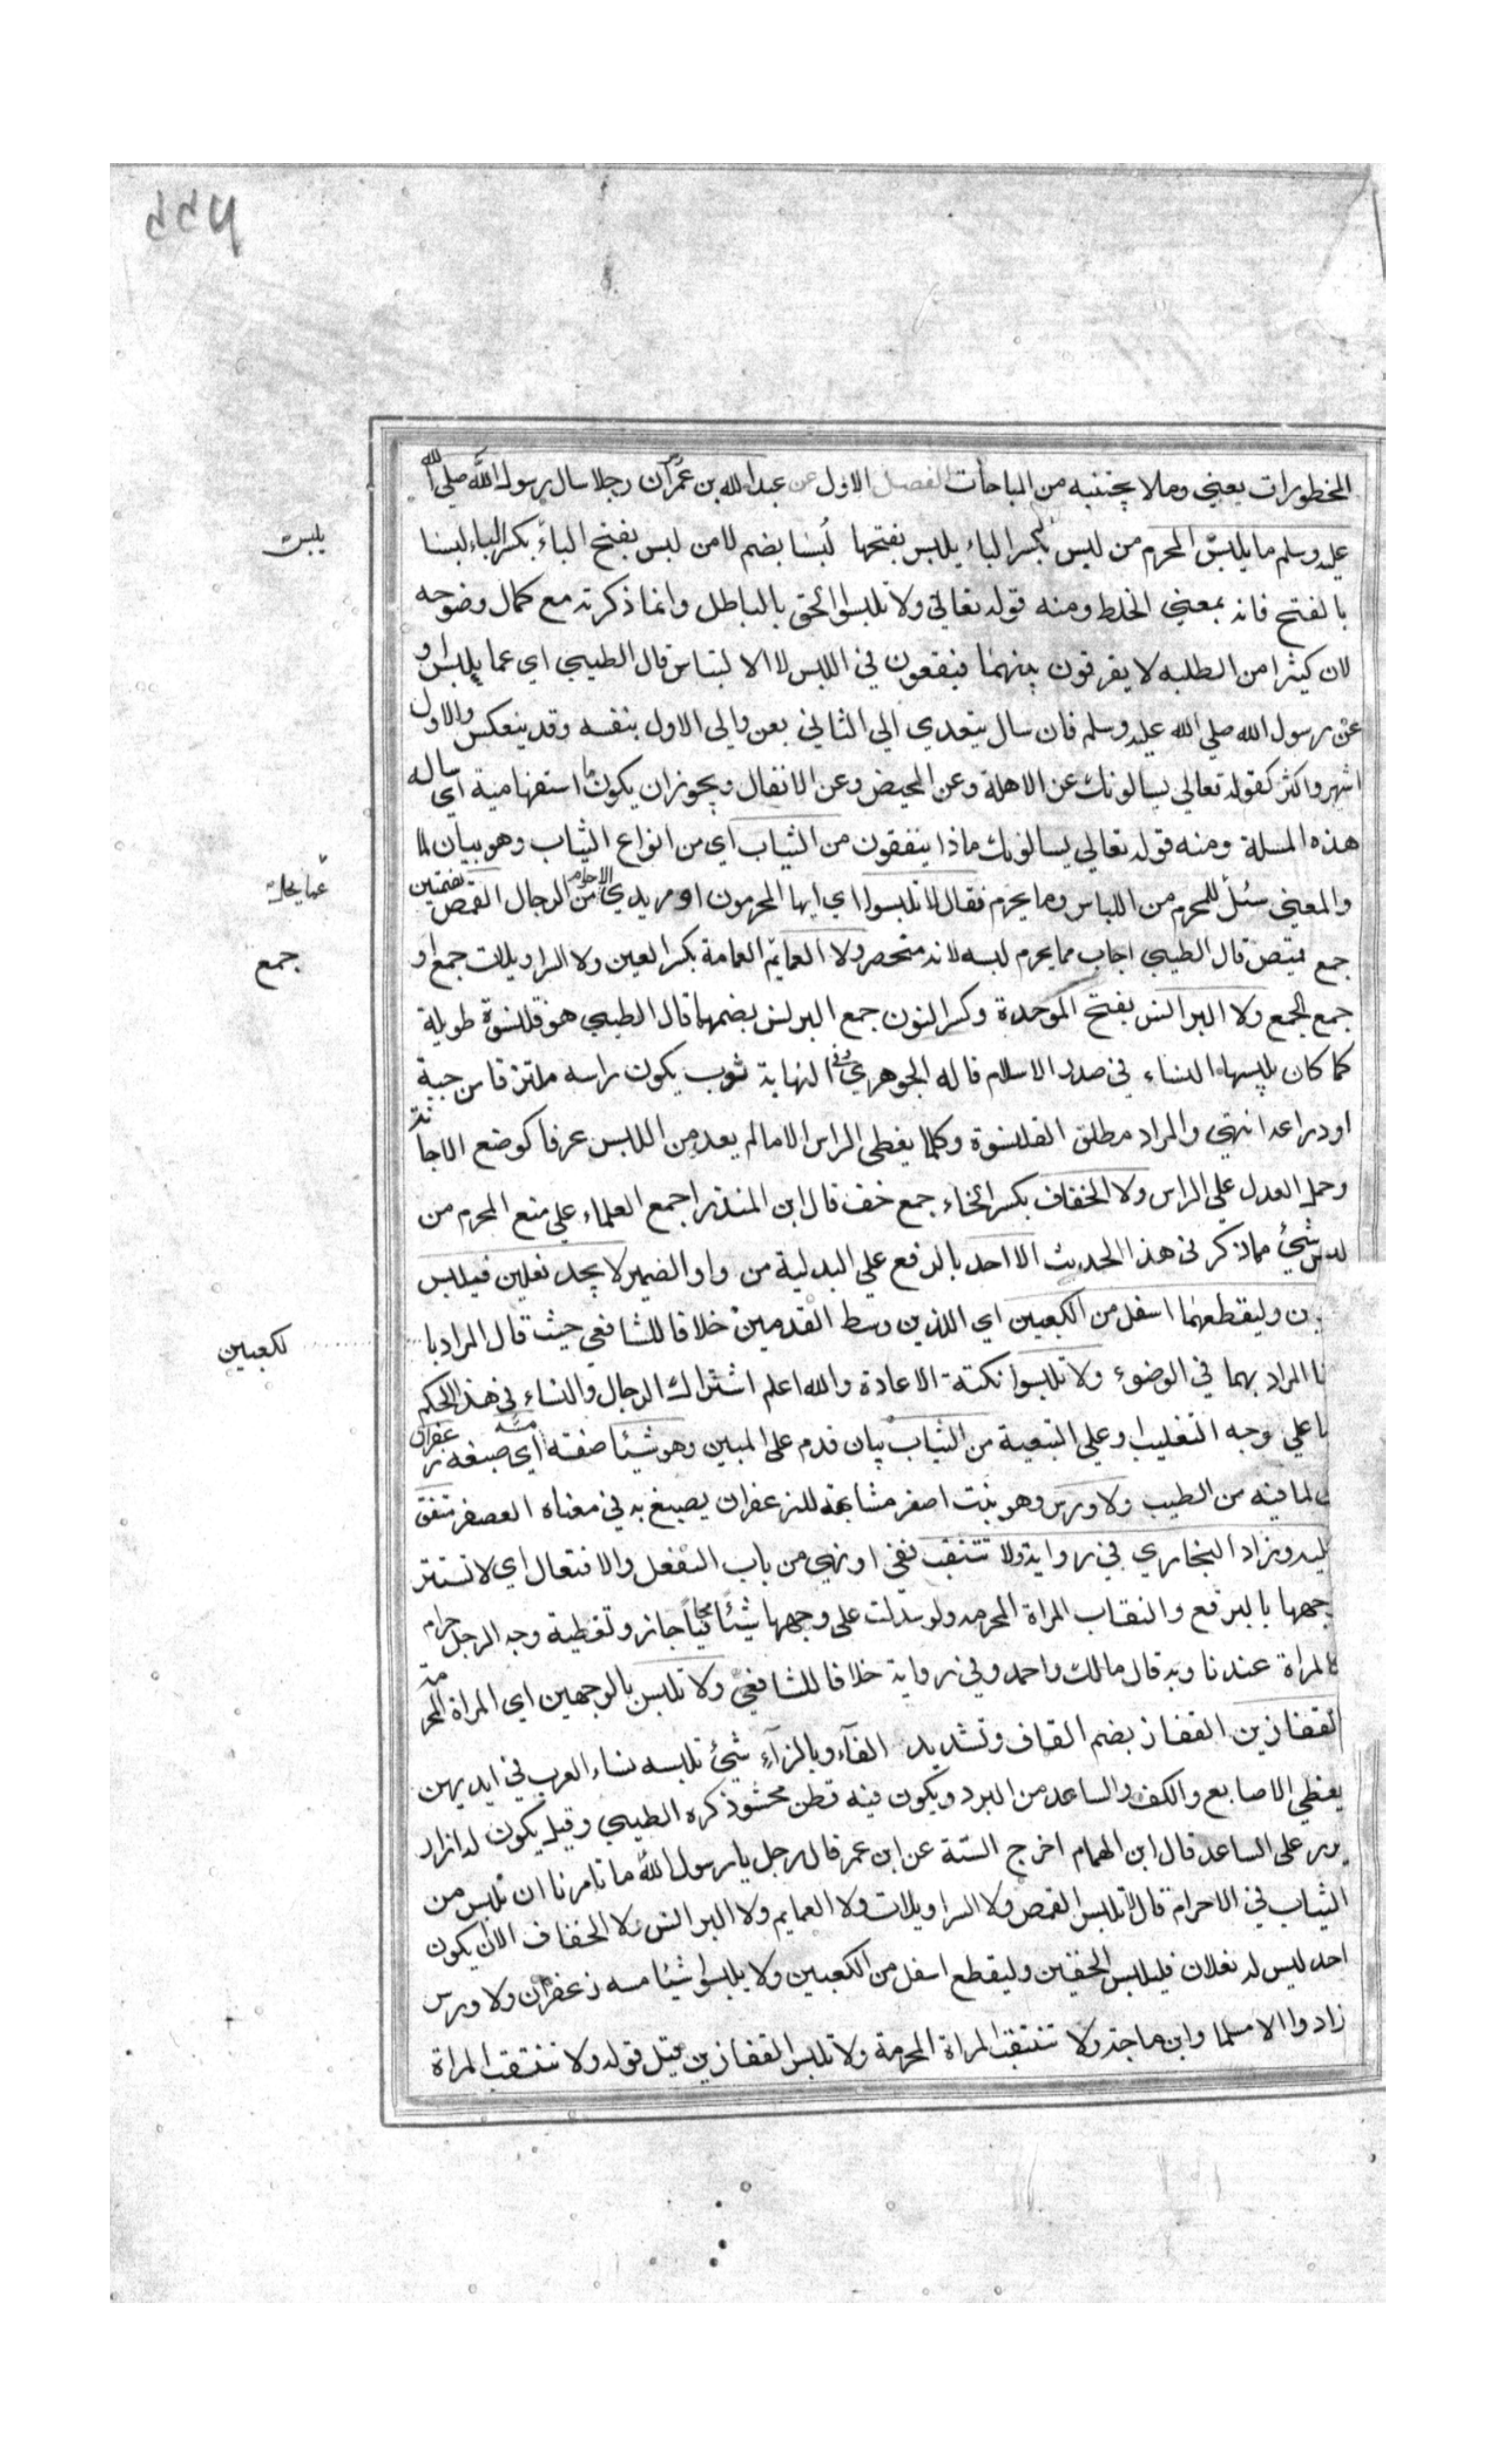 المحظورات يعني وما لا يجتنبه من المباحات الفصل الاول عن عبد الله بن عمر ان رجلا سال رسول الله صلى الله
عليه وسلم ما يلبس المحرم من لبس بكسر الباء يلبس بفتحها لُبسا بضم لا من لبس بفتح الباء بكسر الباء لبسا
يلبس
بالفتح فانه بمعني الخلط ومنه قوله تعالي ولا تلبسوا الحق بالباطل وانما ذكرته مع كمال وضوحه
لان كثيرا من الطلبه لا يفرقون بينهما فيقعون في اللبس لا الالتباس قال الطيبي اي عما يلبس او
عن رسول الله صلي الله عليه وسلم فان سال يتعدي الي الثاني بعن والي الاول بنفسه وقد ينعكس والاول
اشهر واكثر كقوله تعالي يسالونك عن الاهلة وعن المحيض وعن الانفال ويجوز ان يكون ما استفهامية اي ساله
هذه المسلة ومنه قوله تعالي يسالونك ماذا ينفقون من الثياب اي من انواع الثياب وهو بيان لما
والمعني سُئل للمحرم من اللباس وما يحرم فقال لا تلبسوا اي ايها المحرمون او مريدي الاحرام من الرجال القمص بضمتين
عما يحل
جمع قميص قال الطيبي اجاب مما يحرم لبسه لانه منحصر ولا العمايم العمامة بكسر العين ولا السراويلات جمع او
جمع
جمع الجمع ولا البرانس بفتح الموحدة وكسر النون جمع البرنس بضمهما قال الطيبي هو قلنسوة طويلة
كما كان يلبسها النساء في صدر الاسلام قاله الجوهري وفي النهاية ثوب يكون راسه ملتزقا من جبة
او دراعه انتهي والمراد مطلق القلنسوة وكلما يغطي الراس الا ما لم يعد من اللبس عرفا كوضع الاجانة
وحمل العدل علي الراس ولا الخفاف بكسر الخاء جمع خف قال ابن المنذر اجمع العلماء علي منع المحرم من
لبس شئ مما ذكر في هذا الحديث الا احد بالرفع علي البدلية من واو الضمير لا يجد نعلين فيلبس
وليقطعهما اسفل من الكعبين اي اللذين وسط القدمين خلافا للشافعي حيث قال المراد با
لكعبين
المراد بهما في الوضوء ولا تلبسوا نكتة الاعادة والله اعلم اشتراك الرجال والنساء في هذا الحكم
علي وجه التغليب او علي التبعية من الثياب بيان قدم على المبين وهو شيئا صفته مسه اي صبغه زعفران
لما فيه من الطيب ولا ورس وهو نبت اصفر مشابه للزعفران يصبغ به في معناه العصفر متفق
عليه وزاد البخاري في رواية ولا تنتقب نفي او نهي من باب التفعل والافتعال اي لا تستتر
وجهها بالبرقع والنقاب المراة المحرمه ولو سدلت على وجهها شيئا مجافيا جاز وتغطية وجه الرجل حرام
كالمراة عندنا وبه قال مالك واحمد وفي رواية خلافا للشافعي ولا تلبس بالوجهين اي المراة المحرمة
القفازين القفاز بضم القاف وتشديد الفآء وبالزآء شئ تلبسه نساء العرب في ايديهن
يغطي الاصابع والكف والساعد من البرد ويكون فيه قطن محشو ذكره الطيبي وقيل يكون له ازرار
يزر على الساعد قال ابن الهمام اخرج الستة عن ابن عمر قال رجل يا رسول الله ما تامرنا ان نلبس من
الثياب في الاحرام قال لا تلبس القمص ولا السراويلات ولا العمايم ولا البرانس ولا الخفاف الا ان يكون
احد ليس له نعلان فليلبس الخفين وليقطع اسفل من الكعبين ولا يلبسوا شيئا مسه زعفران ولا ورس
زادوا الا مسلما وابن ماجة ولا تنتقب المراة المحرمة ولا تلبس القفازين قيل قوله ولا تنتقب المراة